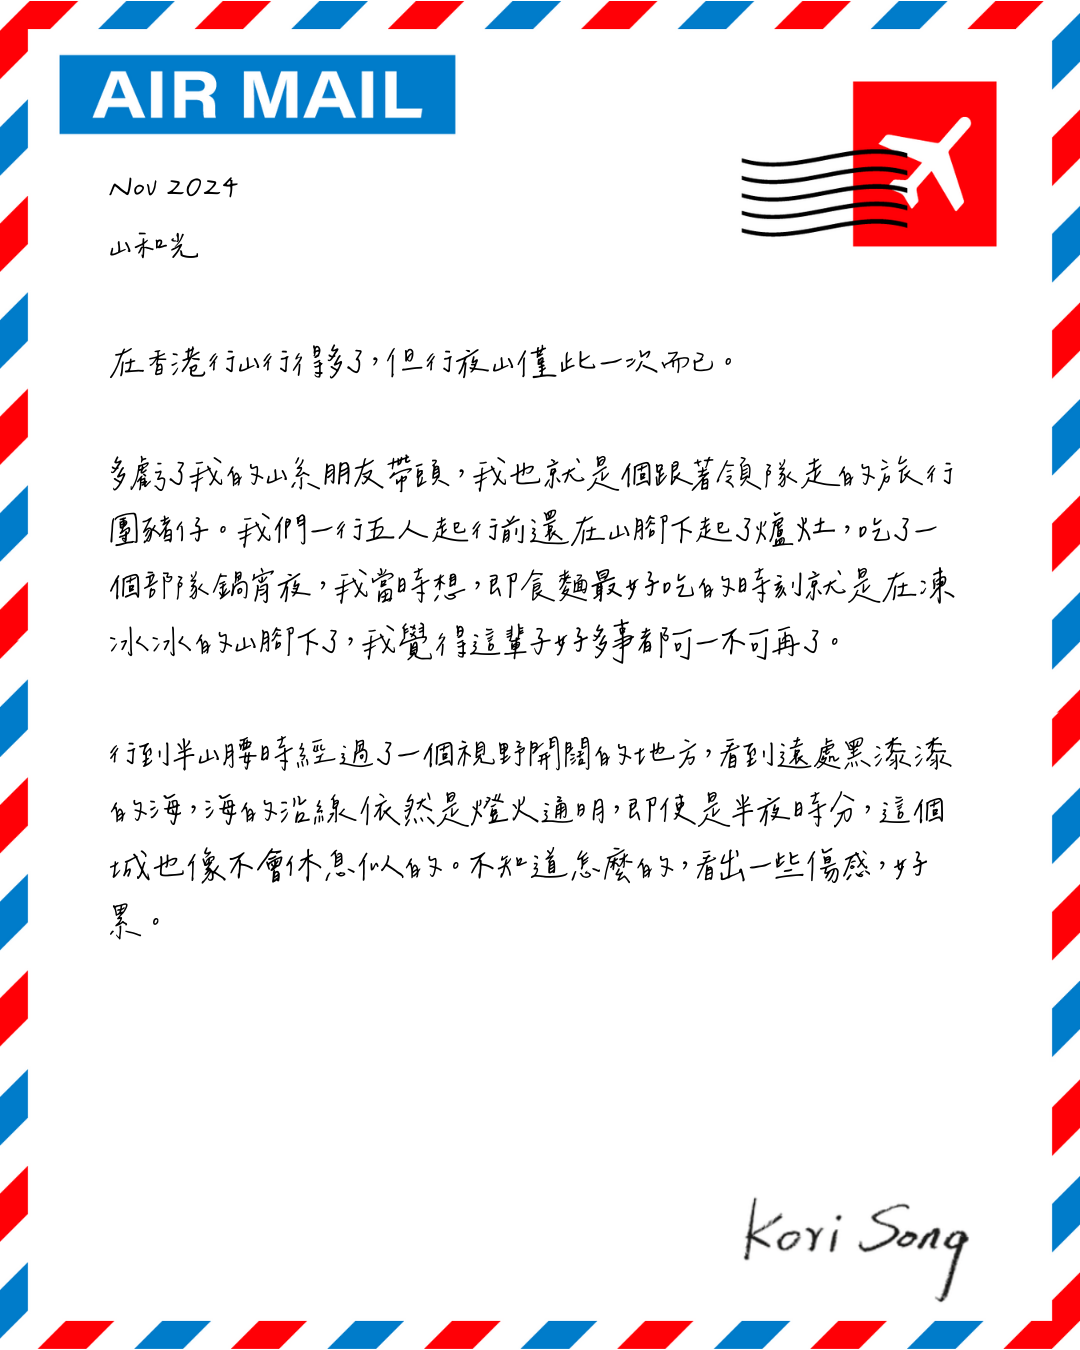 AIR MAIL
Nov 2024
山和光
在香港行山行得多了，但行夜山僅此一次而已。
多虧了我的山系朋友帶頭，我也就是個跟著領隊走的旅行
團豬仔。我們一行五人起行前還在山腳下起了爐灶，吃了一
個部隊鍋宵夜，我當時想，即食麵最好吃的時刻就是在凍
冰冰的山腳下了，我覺得這輩子好多事都可一不可再了。
行到半山腰時經過了一個視野開闊的地方，看到遠處黑漆漆
的海，海的沿線依然是燈火通明，即使是半夜時分，這個
城也像不會休息似的。不知道怎麼的，看出一些傷感，好
累。
Kori Song